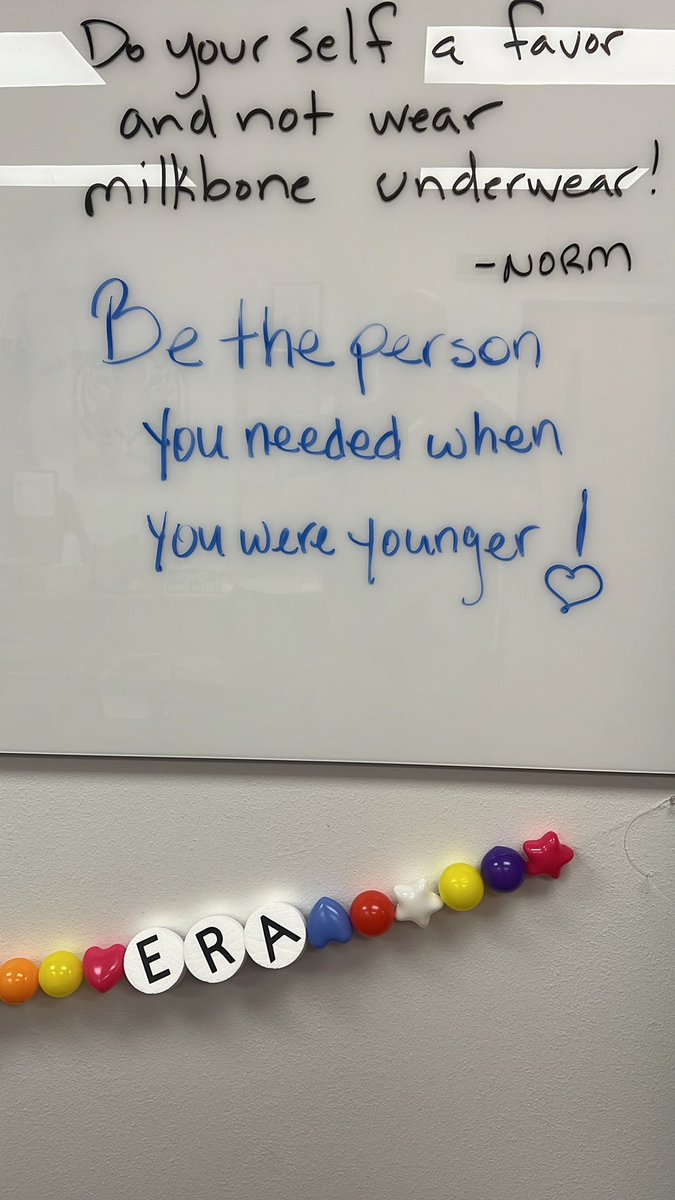 Do your self a favor
and not wear
milkbone underwear!
-NORM
Be the person
you needed when
you were younger!
ERA